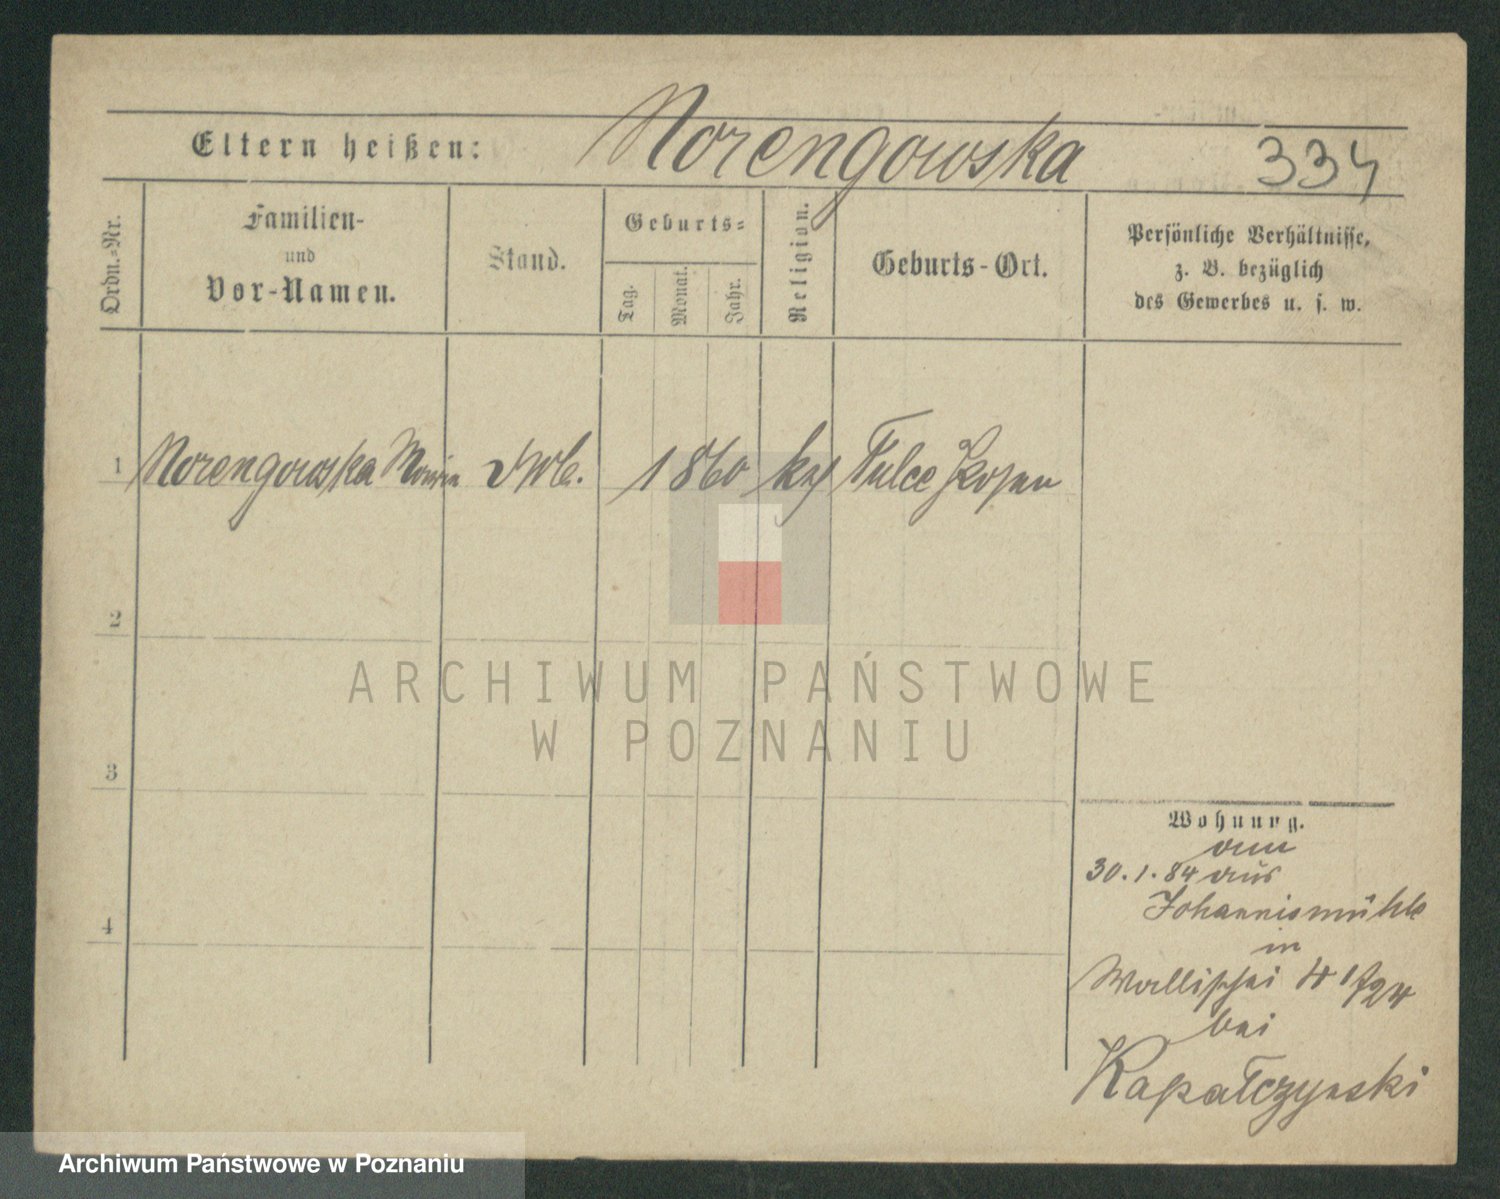 Eltern heißen: Norengowska 334
Ordn.-Nr.
Familien-
und
Vor-Namen.
Stand.
Geburts-
Tag.
Monat.
Jahr.
Religion.
Geburts-Ort.
Persönliche Verhältnisse,
z. B. bezüglich
des Gewerbes u. s. w.
1 Norengowska Maria 1860 Tulce Posen
2
ARCHIWUM PAŃSTWOWE
W POZNANIU
3
4
Wohnung.
am
30.1.84 aus
Johannismühle
in
Wallischei
bei
Kapałczynski
Archiwum Państwowe w Poznaniu